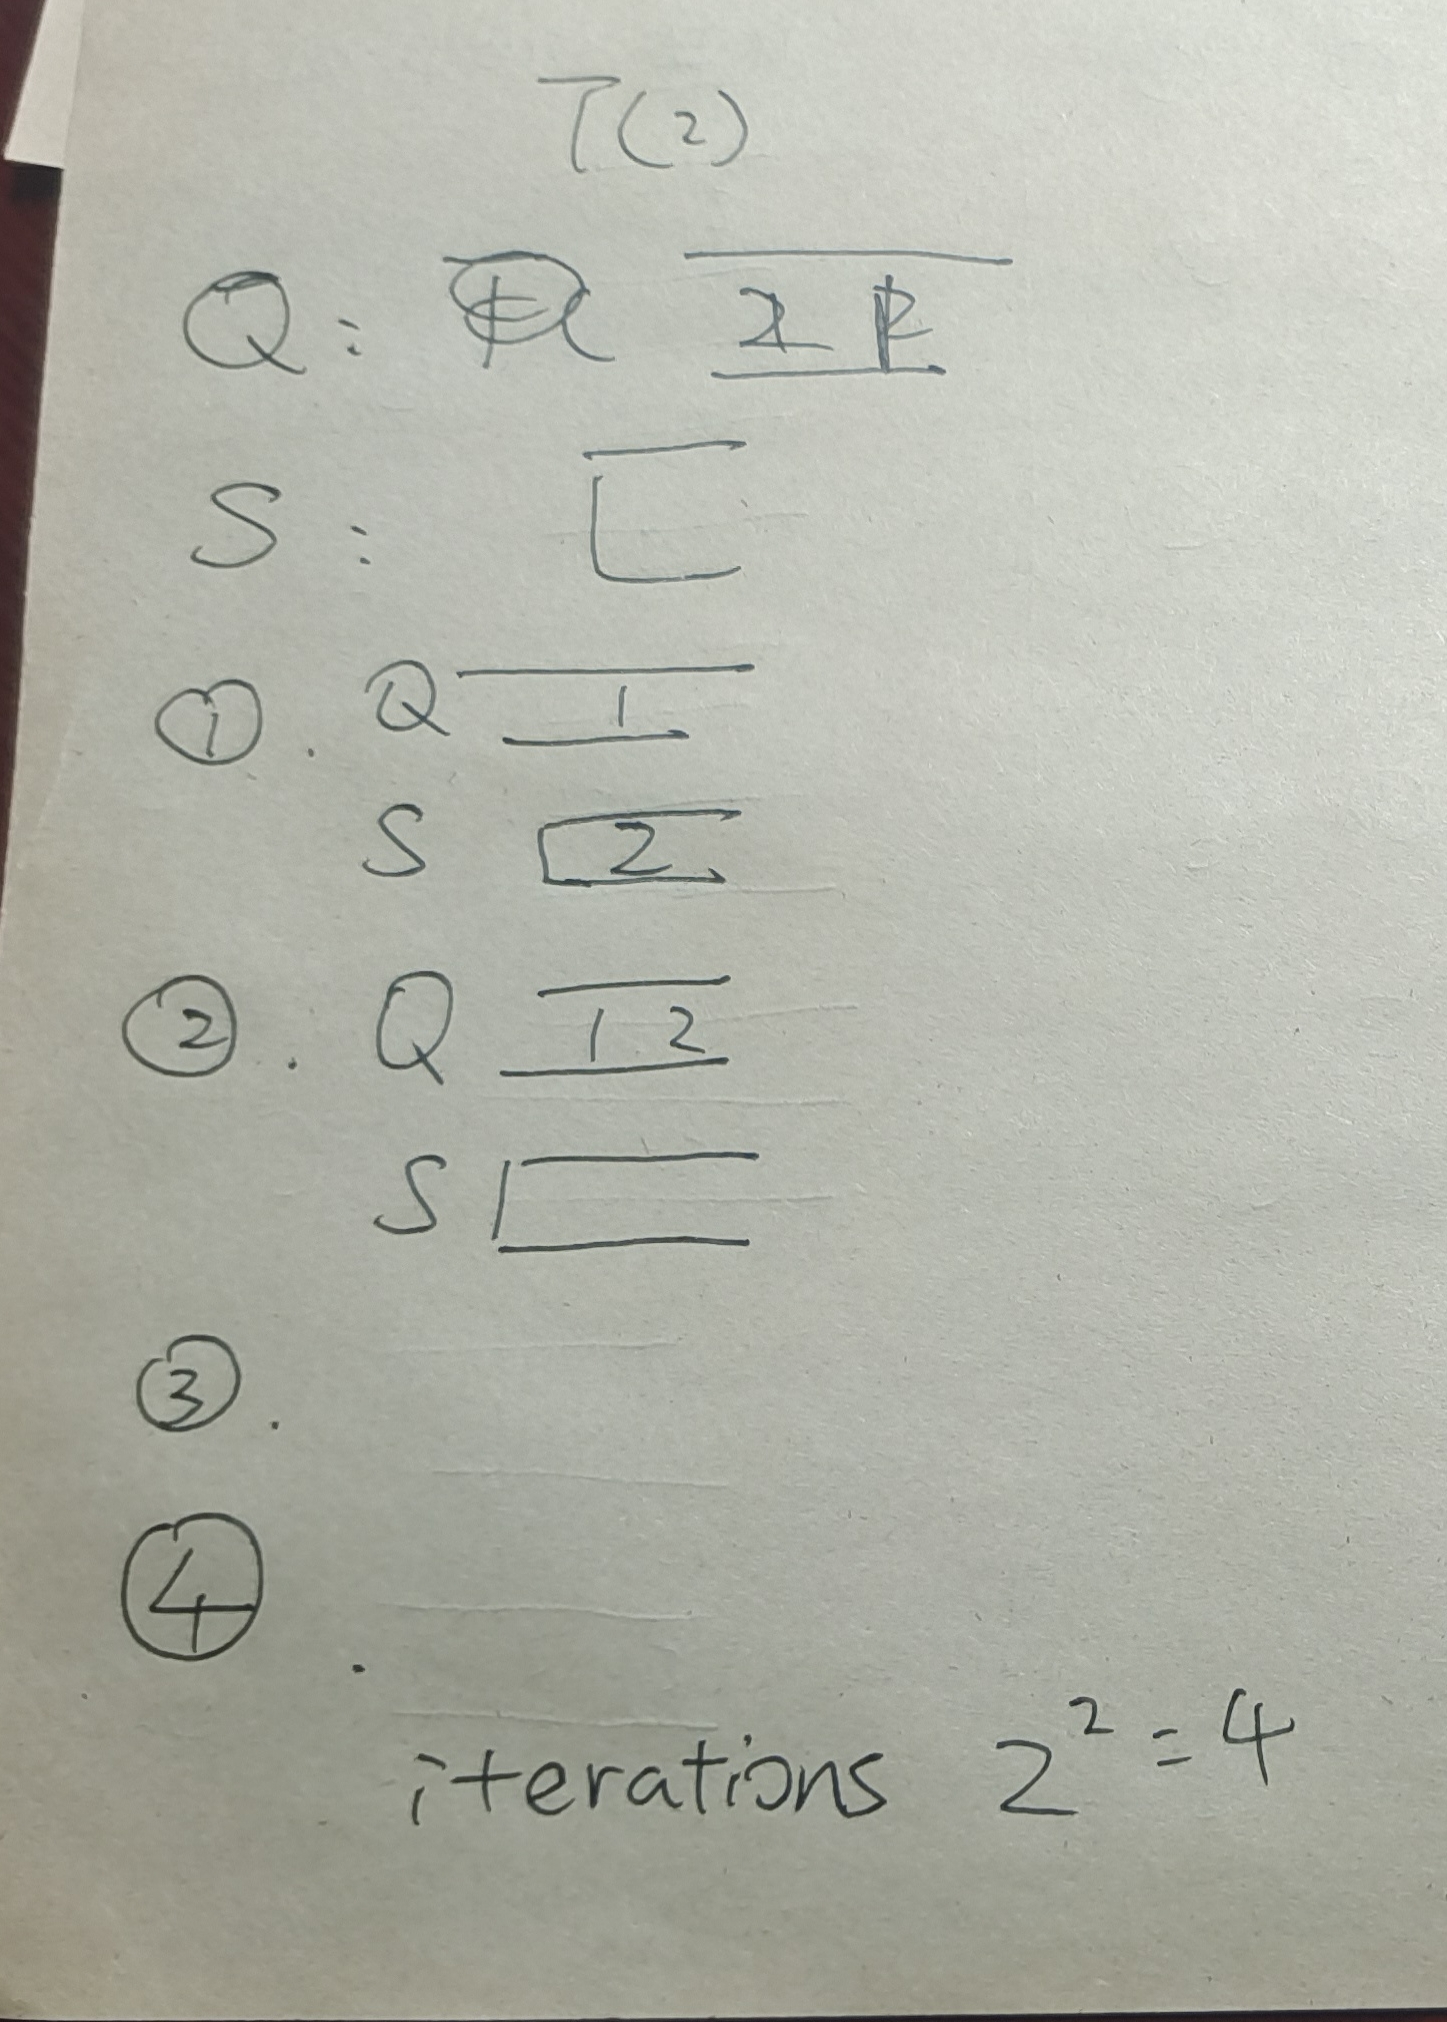 T(2)
Q: 2
S:
①. Q 1
S 2
②. Q 1 2
S
③.
④.
iterations 2² = 4